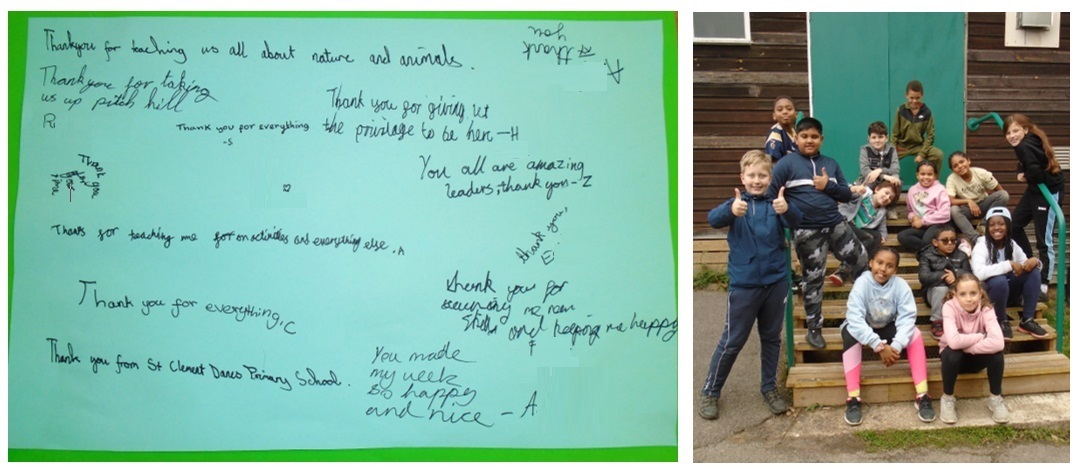 Thankyou for teaching us all about nature and animals.
thank you
A
Thankyou for taking
us up pitch hill
R
Thank you for everything
-S
Thank you for giving us
the privilage to be here -H
You all are amazing
leaders, thank you - Z
Thanks for teaching me activities and everything else. A
thank you,
E
Thank you for everything, C
thank you for
me new
and helping me happy
F
Thank you from St Clement Danes Primary School.
You made
my week
so happy
and nice - A